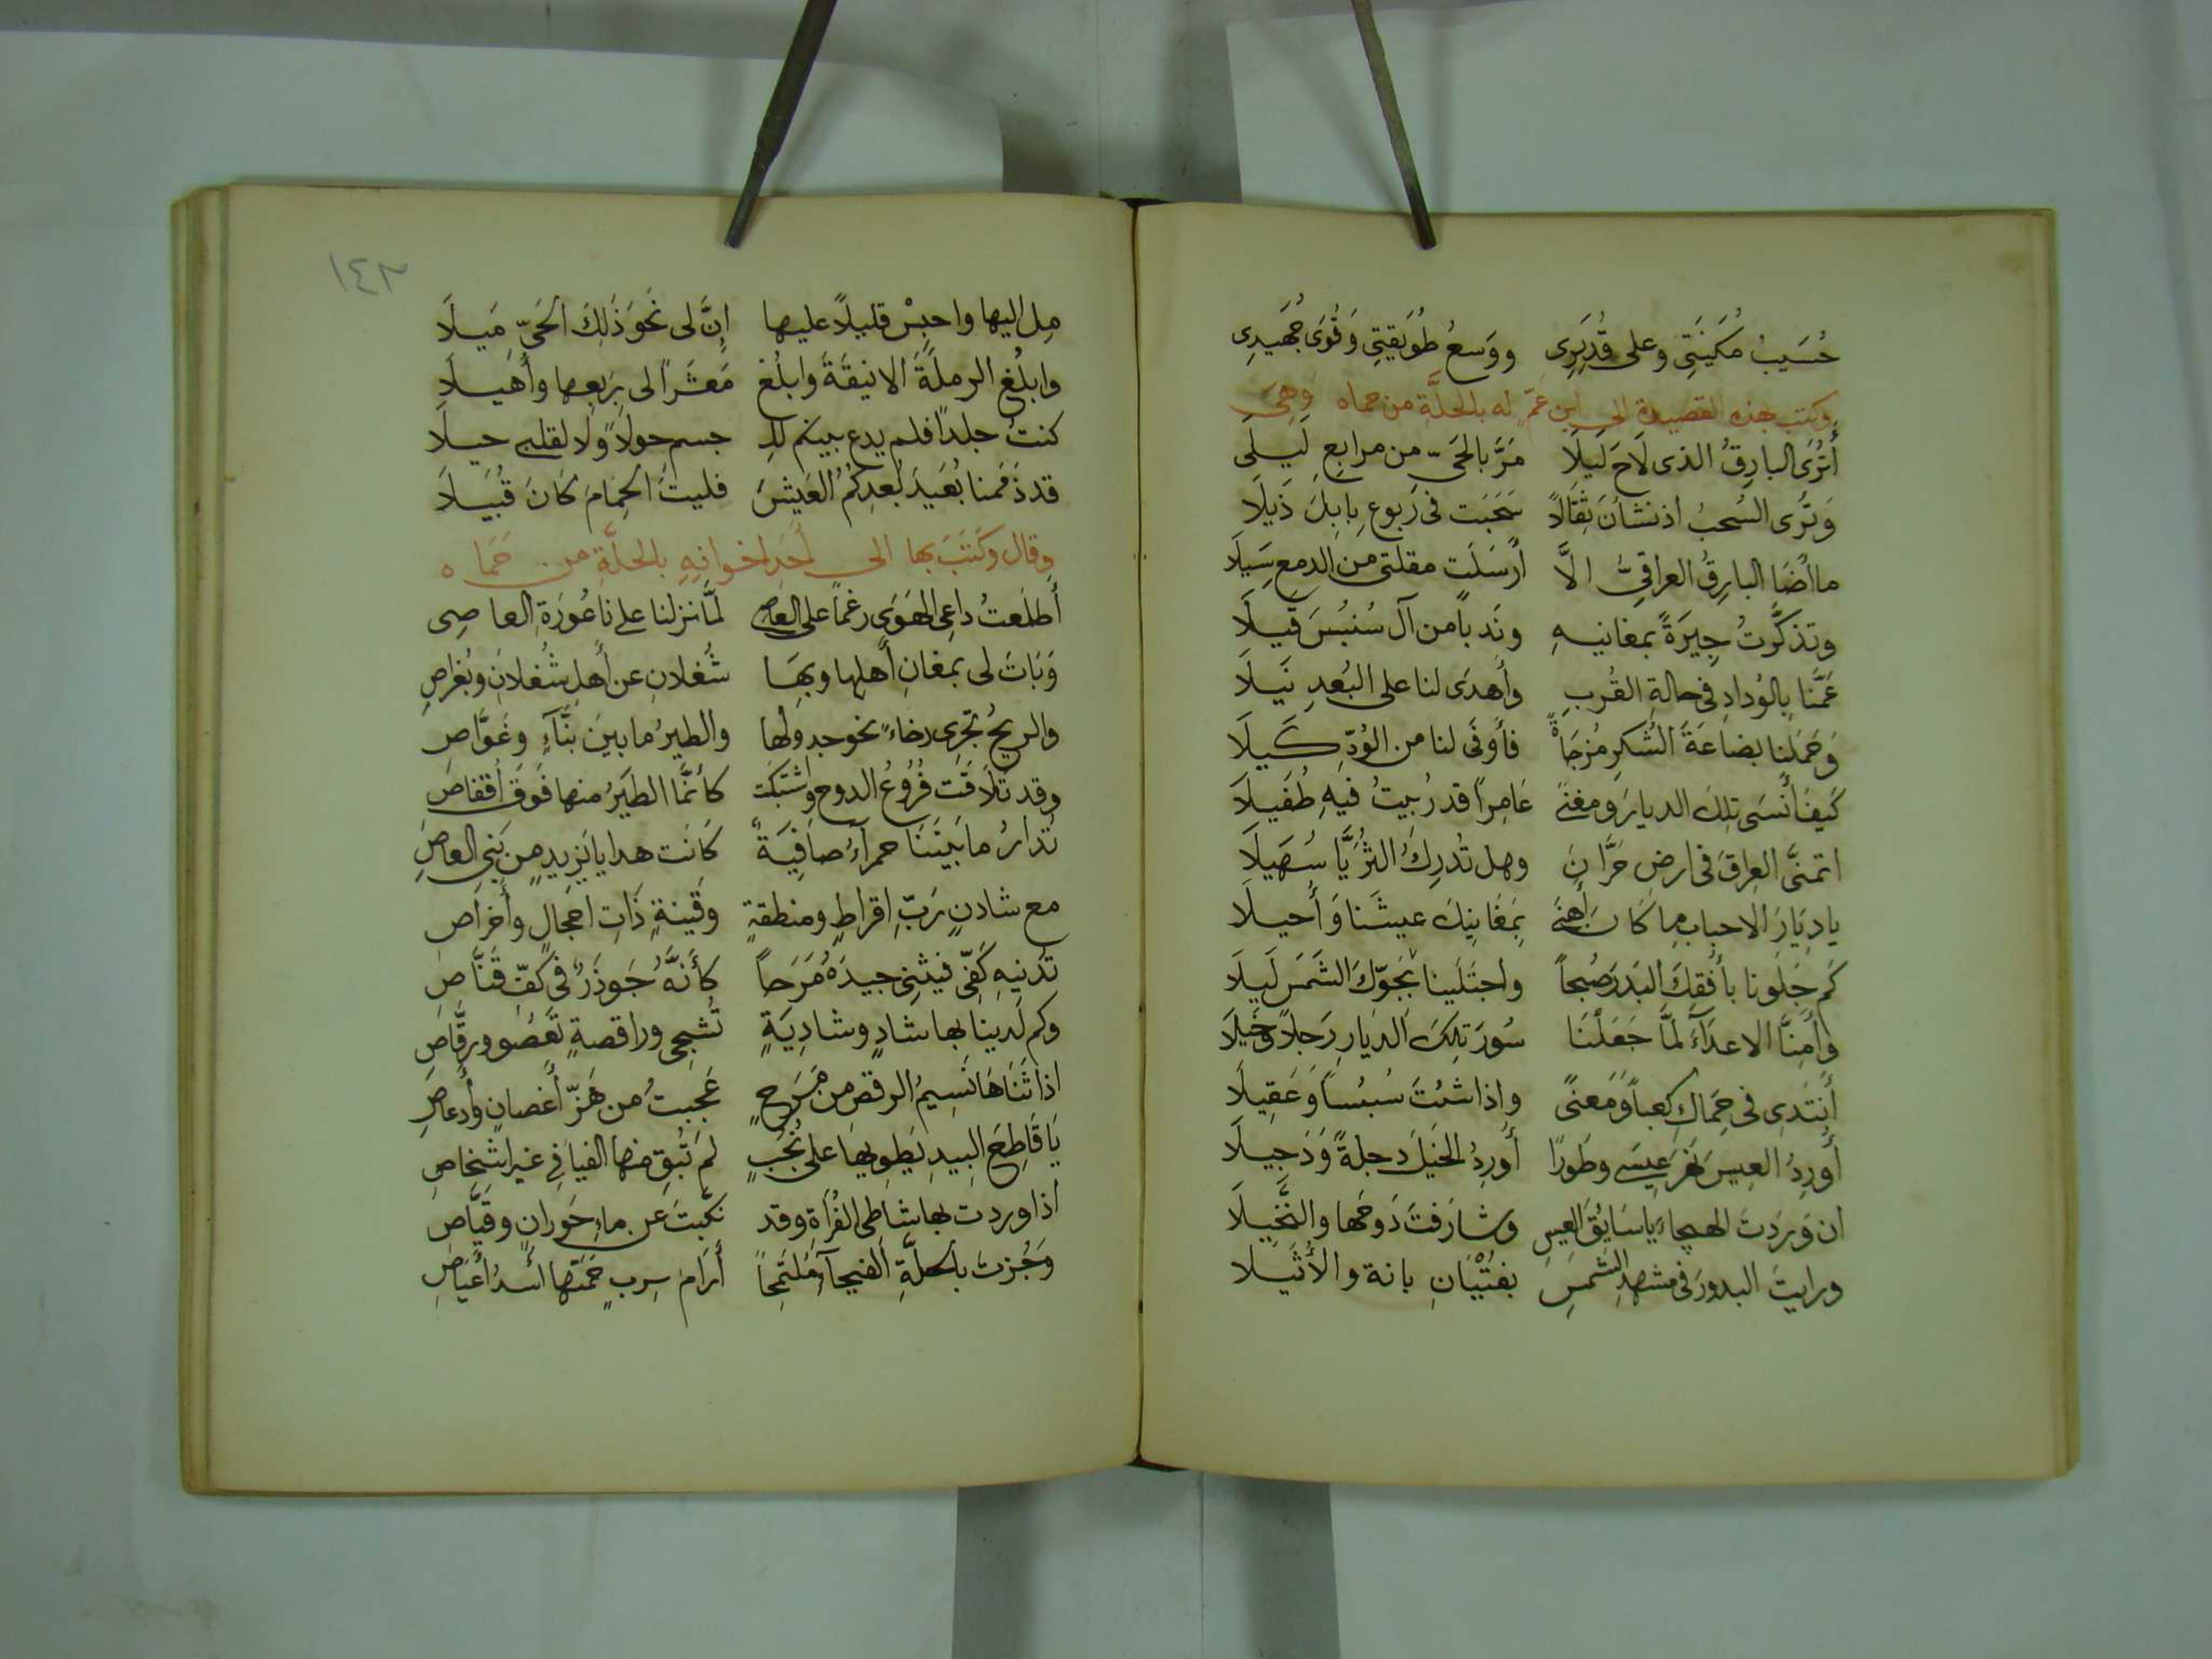 حُسَيبْ مُكَينَتِي وعلى قُدَيرِى ووَسعُ طُوَيقَتِي وَقُوَى جُهَيدِى
وكتب هذه القصيدة الى ابن عمّ له بالحلَّةِ من حماه وهِىَ
أَتُرَى البارِقُ الذى لَاحَ لَيلَا مَرَّ بالحَىّ من مرابعِ لَيلَى
وَتُرَى السُحبُ اذ نشأنَ ثِقَالاً سَحَبَت فى رُبوعِ بابلَ ذَيلَا
ما أضَا البارِقُ العراقِىُّ الاَّ أرسَلَت مقلتى من الدمع سَيلَا
وتذكَّرتُ جِيرَةً بمغانيهِ ونَدباً من آل سُنبُسَ قَيلَا
عَمَّنا بالوُدادِ فى حالةِ القُربِ وأَهدَى لنا على البُعدِ نَيلَا
وَحَمَلنا بضاعَةَ الشُكرِ مُزجَاةً فأَوفَى لنا من الوُدِّ كَيلَا
كَيفَ أَنسَى تِلكَ الديارَ ومغنىً عَامِراً قد رُبيتُ فيهِ طُفَيلَا
اتمنَّى العِراقَ فى ارضِ حَرَّانَ وهل تُدرِكُ الثُرَيَّا سُهَيلَا
يا دِيَارَ الاحبابِ ما كَانَ أهنَى بمَغَانِيكَ عيشَنا وَأُحيلَا
كَم جَلَونا بأفقِكَ البَدرَ صُبحاً واجتَلَينا بجَوّكَ الشَمسَ لَيلَا
وأَمِنَّا الاعدَآءَ لمَّا جَعَلْنَا سُورَ تلكَ الدِيارِ رَجلاً وخَيلَا
أَنتَدِى فى حِمَاكِ كعباً وَمَعنىً واذا شئتَ سُنبُساً وَعَقِيلَا
أُورِدُ العِيسَ نهرَ عِيسى وطَورًا أُورِدُ الخَيلَ دجلةً وَدَجِيلَا
ان وَرَدتَ الهيجاءَ يا سَايُقَ العِيسِ وشارَفتَ دَوحَها والنَّخِيلَا
ورايتَ البدورَ فى مشهدِ الشمسِ بفتْيَانِ بانة والأُثَيلا
١٤٢
مِل اليها واحبِسْ قليلاً عليها إنَّ لى نَحوَ ذَلكَ الحَىِّ مَيلَا
وابلُغ الرملَةَ الانيقَةَ وابلُغ مَعشَراً لى برَبعِها وأُهَيلَا
كنتُ جلدًا فلم يدع بينكم للجسم حولاً ولا لقلبى حيلَا
قد ذمَمنا بُعَيدَ بُعدِكُمُ العَيشَ فليتَ الحِمَامَ كَانَ قُبَيلَا
وقال وكَتَبَ بها الى أَحَدِ اخوانِهِ بالحلَّةِ من حَمَاه
أَطَلَعتُ داعِى الهَوَى رغماً على العاصِى لمَّا نزلنا على نَاعُورَةِ العاصِى
وَبَاتَ لى بمغانِ أَهلِها وبهَا شُغلانِ عن أهلِ شُغلانٍ وبُغراصِ
والريحُ تجَرِى رخاءً نحو جدولها والطيرُ ما بينَ بَنَّآءٍ وغَوَّاصِ
وقد تَلاَقَت فُرُوعُ الدوح واشتَبَكَت كأنَّما الطَيرُ منها فَوقَ أقفاصِ
تُدَارُ ما بَينَنَا حمرآءُ صافِيَةٌ كَانَت هدايا يَزِيدٍ من بَنِى العاصِ
مع شادنٍ رَبّ اقراطٍ ومنطقةٍ وقَينةٍ ذَاتِ احجالٍ وأَخراصِ
تُدنيهِ كَفّى فيَثنِى جيدَهُ مَرَحاً كأنَّهُ جَوذَرٌ فى كفِّ قَنَّاصِ
وكم لَدينا بها شادٍ وشادِيَةٍ تُشجِى وراقصةٍ تَعصُو ورقَّاصِ
اذا ثَنَاهَا نَسِيمُ الرقص من مَرَحٍ عَجبتُ من هَزّ أَغصانٍ وأَدعاصِ
يَا قَاطِعَ البِيدِ يَطوِيهَا على نُجُبٍ لم تُبقِ منها الفيافِى غيرَ اشخاصِ
اذا وردت بها شاطِى الفُراةِ وقد نكَّبتَ عن ماءِ حَورانٍ وقَيَّاصِ
وَجُزتَ بالحلَّةِ الفيحآءِ مُلتَمِحاً أَرَامَ سِربٍ حَمَتها اُسْدُ أَعَيَاصِ